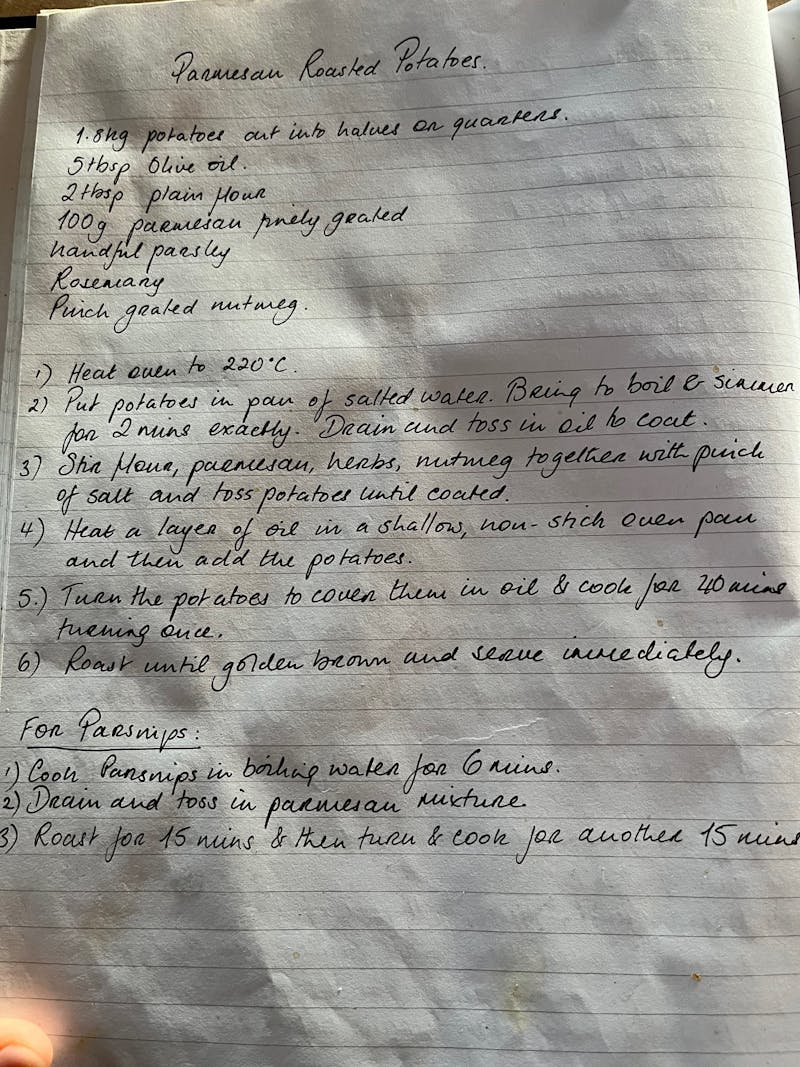 Parmesan Roasted Potatoes.
1.8kg potatoes cut into halves or quarters.
5tbsp Olive oil.
2tbsp plain flour
100g parmesan finely grated
handful parsley
Rosemary
Pinch grated nutmeg.
1) Heat oven to 220°C.
2) Put potatoes in pan of salted water. Bring to boil & simmer
for 2 mins exactly. Drain and toss in oil to coat.
3) Stir flour, parmesan, herbs, nutmeg together with pinch
of salt and toss potatoes until coated.
4) Heat a layer of oil in a shallow, non-stick oven pan
and then add the potatoes.
5.) Turn the potatoes to cover them in oil & cook for 40 mins
turning once.
6) Roast until golden brown and serve immediately.
For Parsnips:
1) Cook Parsnips in boiling water for 6 mins.
2) Drain and toss in parmesan mixture.
3) Roast for 15 mins & then turn & cook for another 15 mins